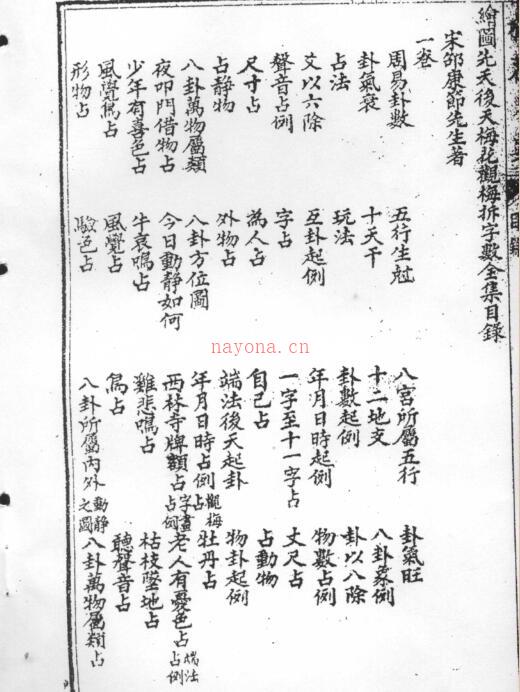 目錄
繪圖先天後天梅花觀梅拆字數全集目錄
宋邵康節先生著
一卷
周易卦數 五行生尅 八宮所屬五行 卦氣旺
卦氣衰 十天干 十二地支 八卦象例
占法 玩法 卦數起例 卦以八除
爻以六除 互卦起例 年月日時起例 物數占例
聲音占例 字占 一字至十一字占 丈尺占
尺寸占 為人占 自己占 占動物
占静物 外物占 端法後天起卦 物卦起例
八卦萬物屬類 八卦方位圖 年月日時占例觀梅占 牡丹占
夜叩門借物占 今日動靜如何 西林寺牌額占字畫占例 老人有憂色占端法占例
少年有喜色占 牛哀鳴占 雞悲鳴占 枯枝墜地占
風覺鳥占 風覺占 鳥占 聽聲音占
形物占 驗色占 八卦所屬內外動静之圖 八卦萬物屬類占
nayona.cn